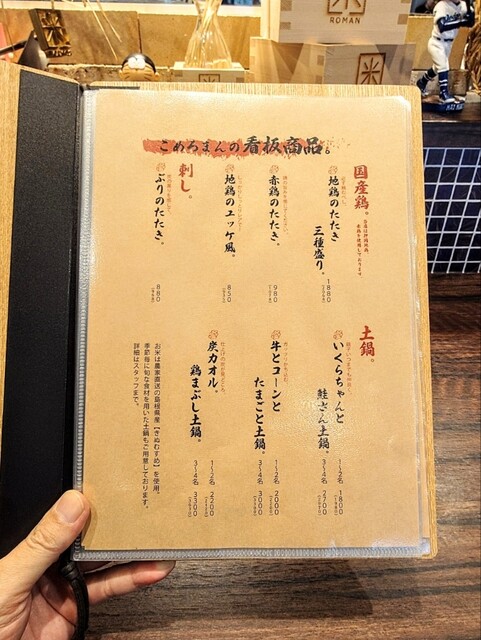 米
ROMAN
米
こめろまんの看板商品。
国産鶏。
地鶏のたたき
三種盛り。
1880
赤鶏のたたき。
980
地鶏のユッケ風。
850
刺し。
ぶりのたたき。
880
土鍋。
いくらちゃんと
鮭さん土鍋。
1〜2名 1800
3〜4名 2700
牛とコーンと
たまごと土鍋。
1〜2名 2000
3〜4名 3000
炭カオル。
鶏まぶし土鍋。
1〜2名 2200
3〜4名 3300
お米は農家直送の島根県産【きぬむすめ】を使用。
季節毎に旬な食材を用いた土鍋もご用意しております。
詳細はスタッフまで。